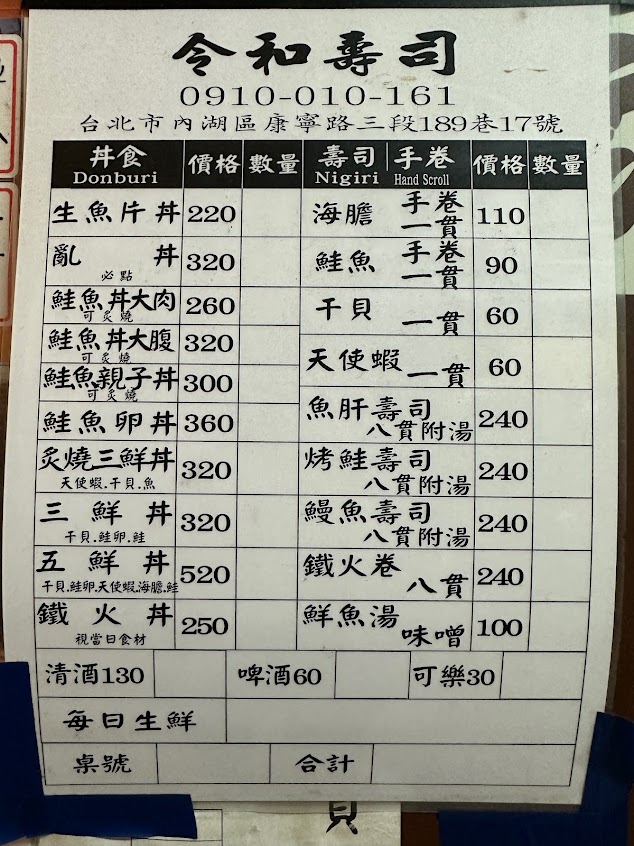 令和壽司
0910-010-161
台北市內湖區康寧路三段189巷17號
丼食 價格 數量 壽司 手卷 價格 數量
Donburi Nigiri Hand Scroll
生魚片丼 220
亂丼 320
必點
鮭魚丼大肉 260
可炙燒
鮭魚丼大腹 320
可炙燒
鮭魚親子丼 300
可炙燒
鮭魚卵丼 360
炙燒三鮮丼 320
天使蝦.干貝.魚
三鮮丼 320
干貝.鮭卵.鮭
五鮮丼 520
干貝.鮭卵.天使蝦.海膽.鮭
鐵火丼 250
視當日食材
海膽 手卷 110
一貫
鮭魚 手卷 90
一貫
干貝 一貫 60
天使蝦 一貫 60
魚肝壽司 240
八貫附湯
烤鮭壽司 240
八貫附湯
鰻魚壽司 240
八貫附湯
鐵火卷 240
八貫
鮮魚湯 100
味噌
清酒130 啤酒60 可樂30
每日生鮮
桌號 合計